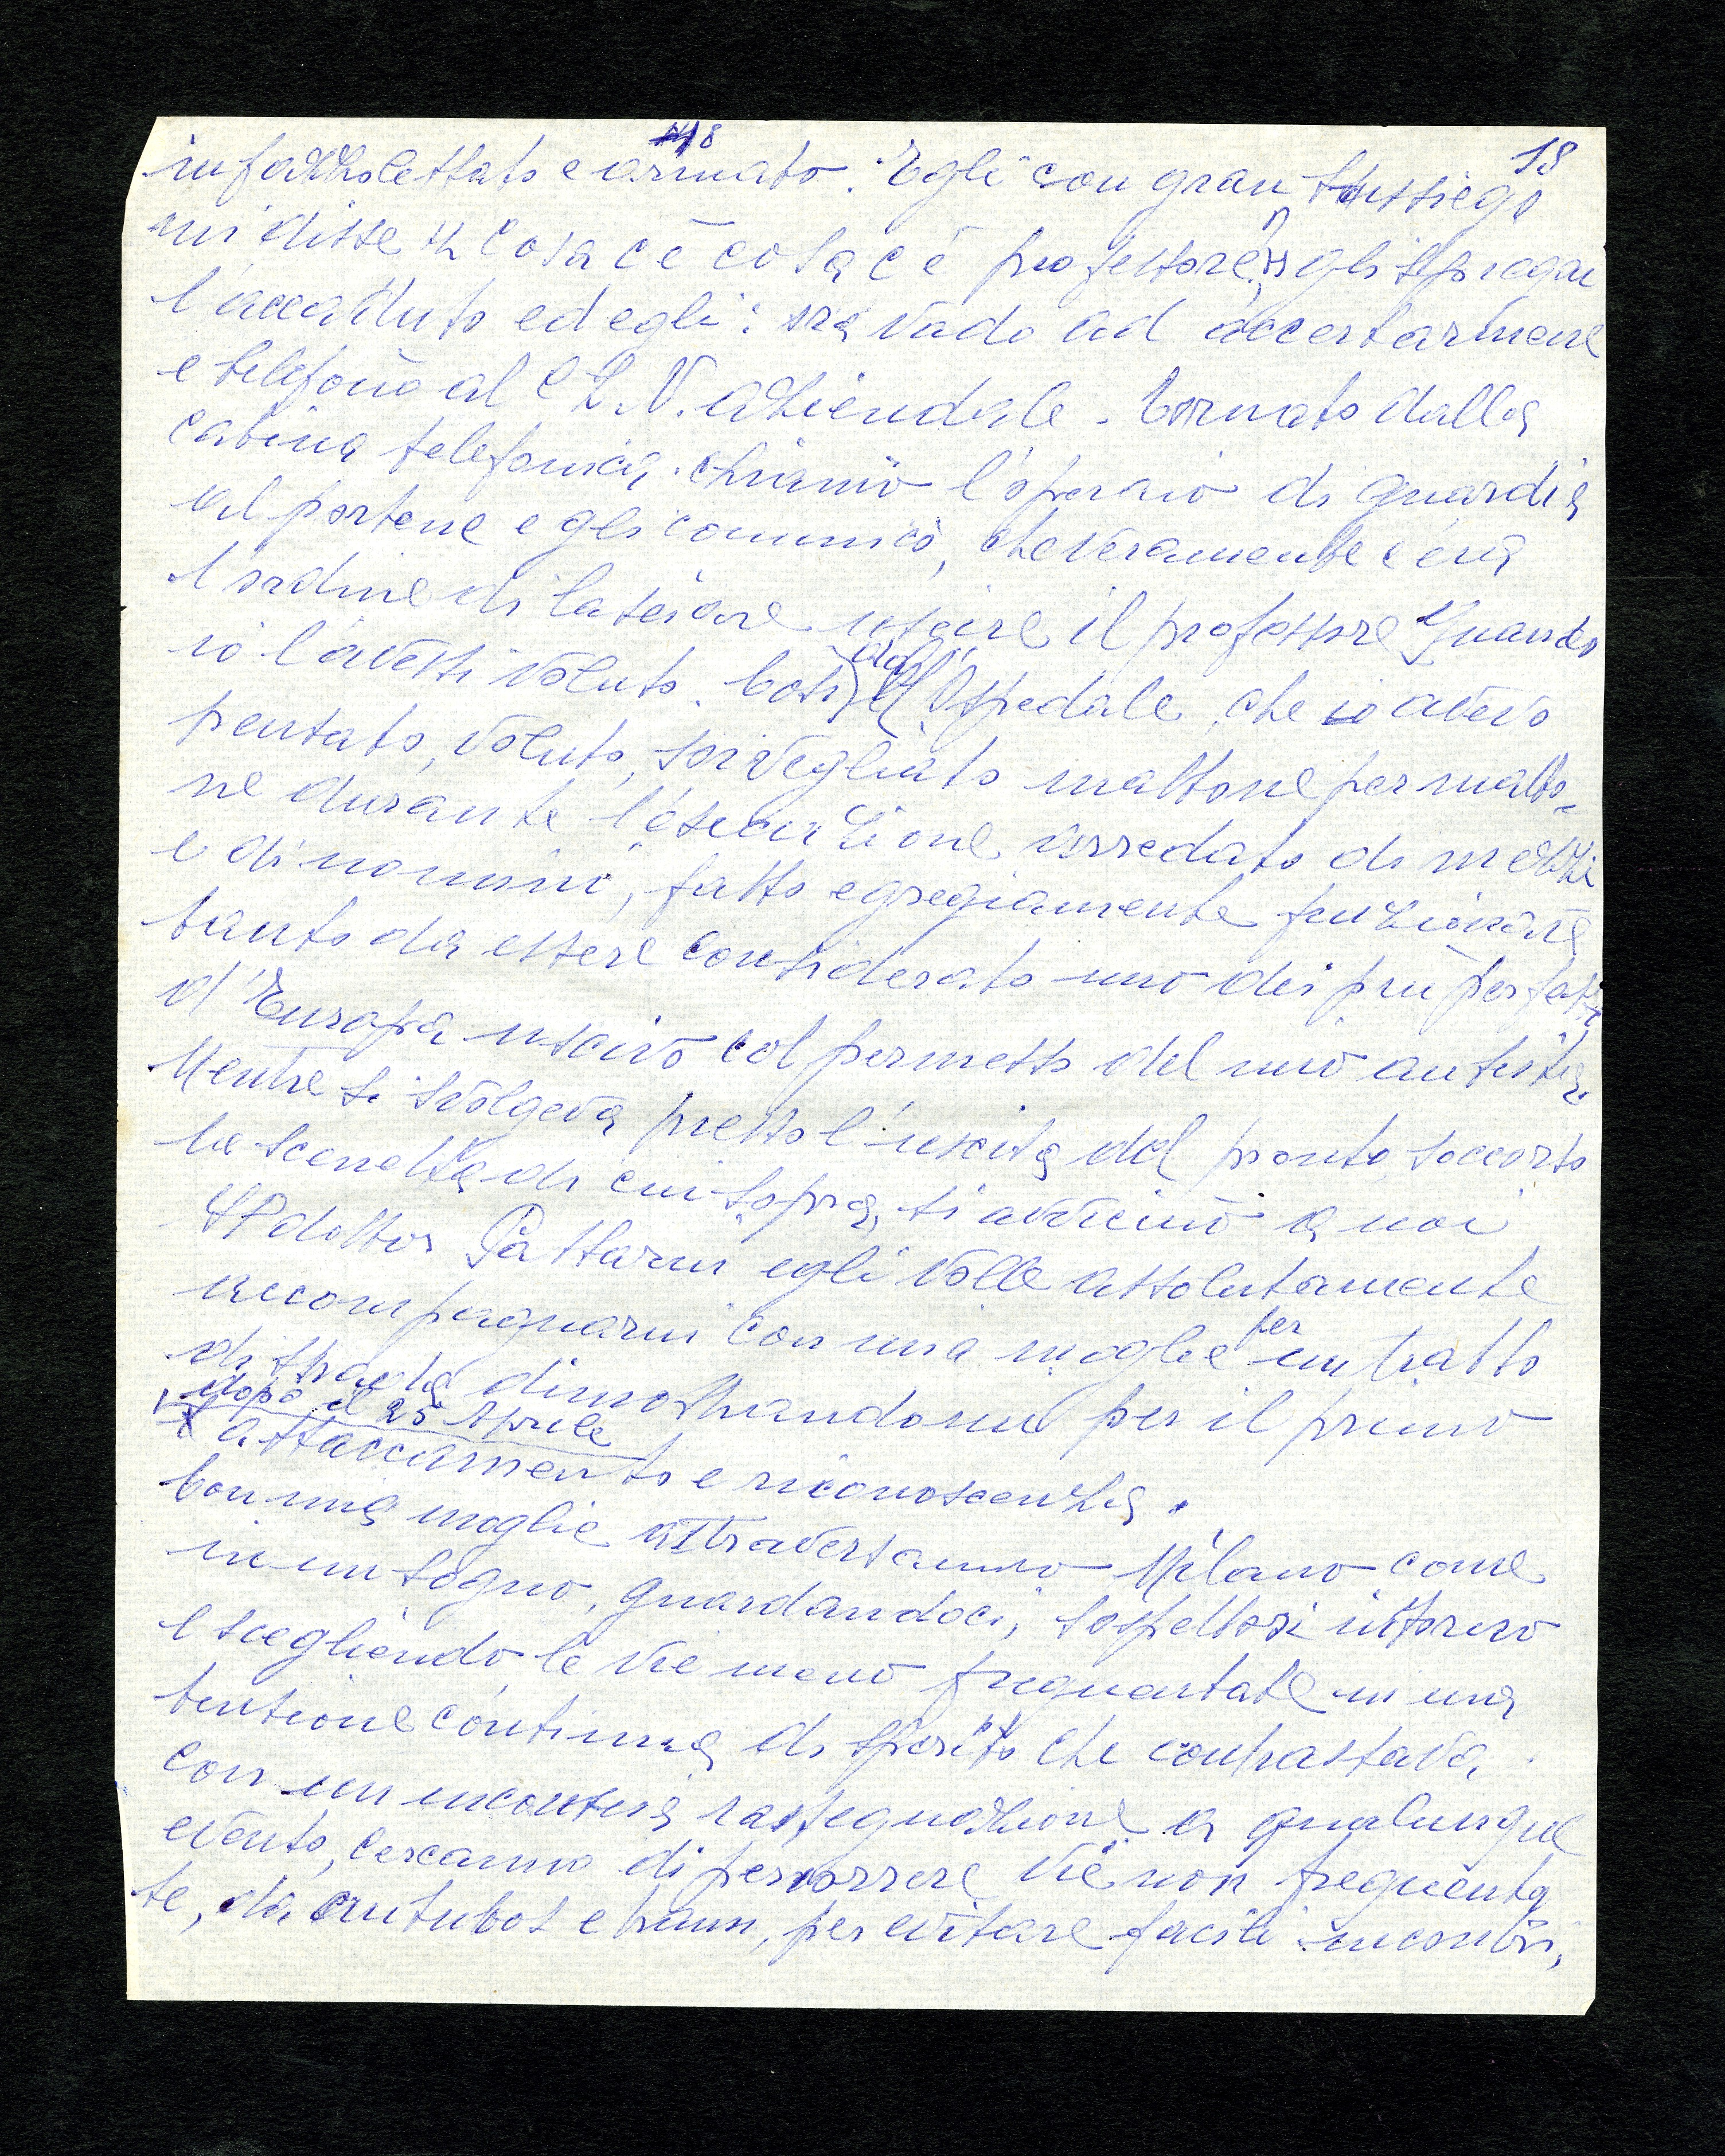 18
18
infazzolettato e armato. Egli con gran sussiego
mi disse "Cosa c'è cosa c'è professore?" gli spiegai
l'accaduto ed egli: ora vado ad accertarmene
e telefonò al C.L.N. aziendale. Tornato dalla
cabina telefonica chiamò l'operaio di guardia
al portone e gli comunicò, che veramente c'era
l'ordine di lasciare uscire il professore quando
io l'avessi voluto. Così dall'Ospedale, che io avevo
pensato, voluto, sorvegliato mattone per matto-
ne durante l'esecuzione, arredato di mezzi
e di uomini, fatto egregiamente funzionare
tanto da essere considerato uno dei più perfetti
d'Europa uscivo col permesso del mio autista.
Mentre si svolgeva presso l'uscita del pronto soccorso
la scenetta di cui sopra, si avvicinò a noi
il dottor Pattarin egli volle assolutamente
accompagnarmi con mia moglie per un tratto
di strada dimostrandomi per il primo
dopo il 25 Aprile
attaccamento e riconoscenza.
Con mia moglie attraversammo Milano come
in un sogno, guardandoci, sospettosi intorno
e scegliendo le vie meno frequentate in una
tensione continua di spirito che contrastava,
con un inconscia rassegnazione a qualunque
evento, cercammo di percorrere vie non frequenta
te, da autubos e tram, per evitare facili incontri,